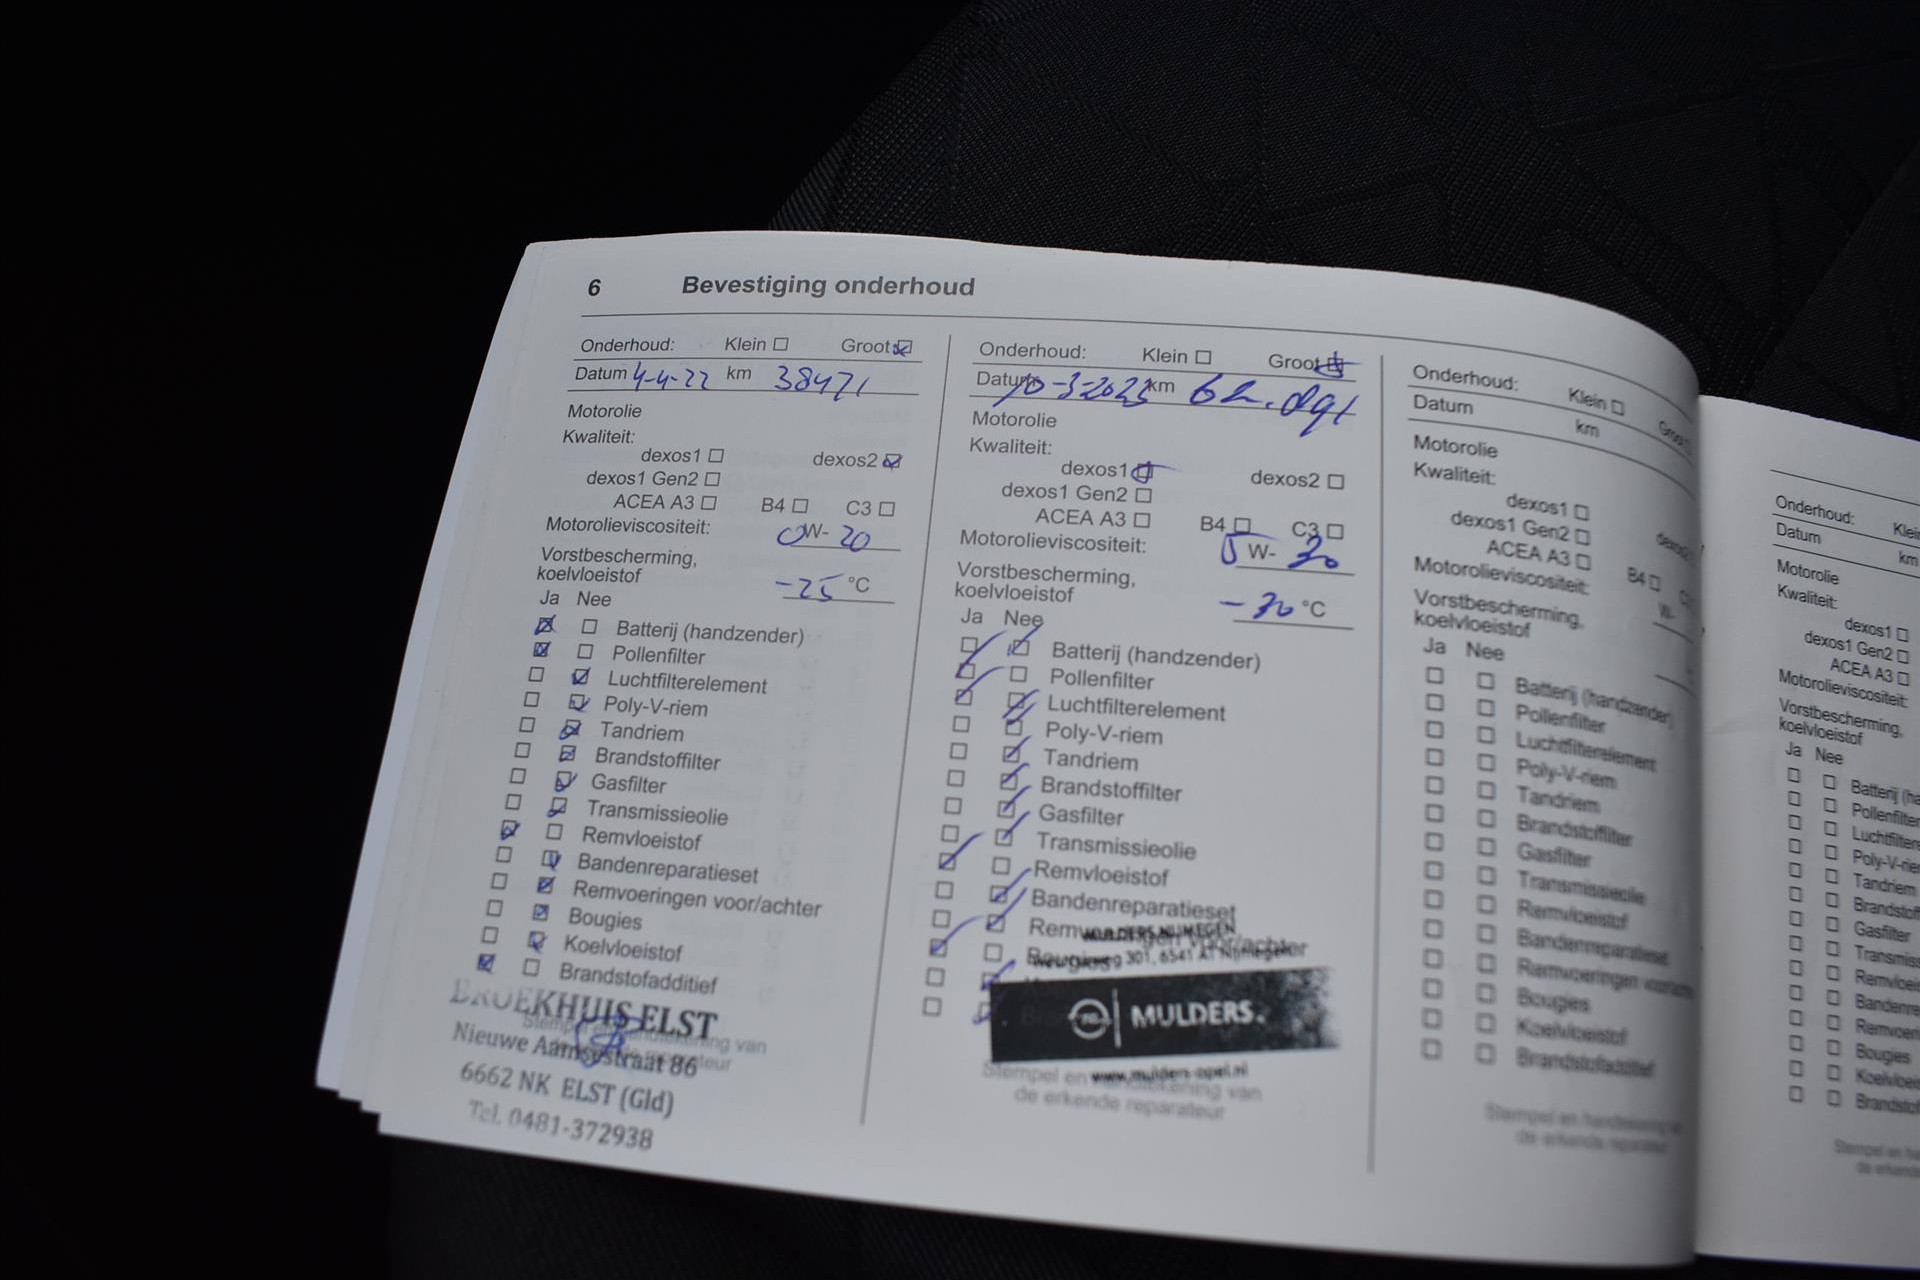 6 Bevestiging onderhoud
Onderhoud: Klein ☐ Groot ☑
Datum 4-4-22 km 38471
Motorolie
Kwaliteit:
dexos1 ☐ dexos2 ☑
dexos1 Gen2 ☐
ACEA A3 ☐ B4 ☐ C3 ☐
Motorolieviscositeit: 0W-20
Vorstbescherming,
koelvloeistof -25 °C
Ja Nee
☑ ☐ Batterij (handzender)
☑ ☐ Pollenfilter
☐ ☑ Luchtfilterelement
☐ ☑ Poly-V-riem
☐ ☑ Tandriem
☐ ☑ Brandstoffilter
☐ ☑ Gasfilter
☐ ☑ Transmissieolie
☑ ☐ Remvloeistof
☐ ☑ Bandenreparatieset
☐ ☑ Remvoeringen voor/achter
☐ ☑ Bougies
☐ ☑ Koelvloeistof
☑ ☐ Brandstofadditief
BROEKHUIS ELST
Stempel en handtekening van
Nieuwe Aamsestraat 86
6662 NK ELST (Gld)
Tel. 0481-372938
Onderhoud: Klein ☐ Groot ☑
Datum 10-3-2023 km
Motorolie
Kwaliteit:
dexos1 ☑ dexos2 ☐
dexos1 Gen2 ☐
ACEA A3 ☐ B4 ☐ C3 ☐
Motorolieviscositeit: 5W-30
Vorstbescherming,
koelvloeistof -30 °C
Ja Nee
Batterij (handzender)
Pollenfilter
Luchtfilterelement
Poly-V-riem
Tandriem
Brandstoffilter
Gasfilter
Transmissieolie
Remvloeistof
Bandenreparatieset
Remvoeringen voor/achter
MULDERS NIJMEGEN
Bougies
301, 6541 AT Nijmegen
MULDERS.
www.mulders-opel.nl
Stempel en handtekening van
de erkende reparateur
Onderhoud: Klein ☐
Datum km
Motorolie
Kwaliteit:
dexos1 ☐
dexos1 Gen2 ☐
ACEA A3 ☐ B4 ☐
Motorolieviscositeit: W-
Vorstbescherming,
koelvloeistof
Ja Nee
☐ ☐ Batterij (handzender)
☐ ☐ Pollenfilter
☐ ☐ Luchtfilterelement
☐ ☐ Poly-V-riem
☐ ☐ Tandriem
☐ ☐ Brandstoffilter
☐ ☐ Gasfilter
☐ ☐ Transmissieolie
☐ ☐ Remvloeistof
☐ ☐ Bandenreparatieset
☐ ☐ Remvoeringen voor/achter
☐ ☐ Bougies
☐ ☐ Koelvloeistof
☐ ☐ Brandstofadditief
Stempel en handtekening
de erkende reparateur
Onderhoud: Klei
Datum km
Motorolie
Kwaliteit:
dexos1 ☐
dexos1 Gen2 ☐
ACEA A3 ☐
Motorolieviscositeit:
Vorstbescherming,
koelvloeistof
Ja Nee
☐ ☐ Batterij (ha
☐ ☐ Pollenfilter
☐ ☐ Luchtfiltere
☐ ☐ Poly-V-rie
☐ ☐ Tandriem
☐ ☐ Brandstof
☐ ☐ Gasfilter
☐ ☐ Transmis
☐ ☐ Remvloei
☐ ☐ Bandenre
☐ ☐ Remvoer
☐ ☐ Bougies
☐ ☐ Koelvloei
☐ ☐ Brandsto
Stempel en ha
de erkende